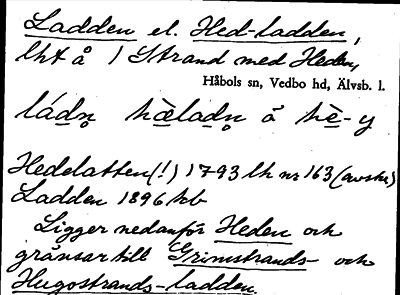 Ladden el. Hed-ladden,
lht å 1 Strand med Heden,
Håbols sn, Vedbo hd, Älvsb. l.
ládn̥ hèladn̥ å hè-y
Hedelatten (!) 1793 lh nr 163 (avskr)
Ladden 1896 kb
Ligger nedanför Heden och
gränsar till Grimstrands- och
Hugostrands-ladden.